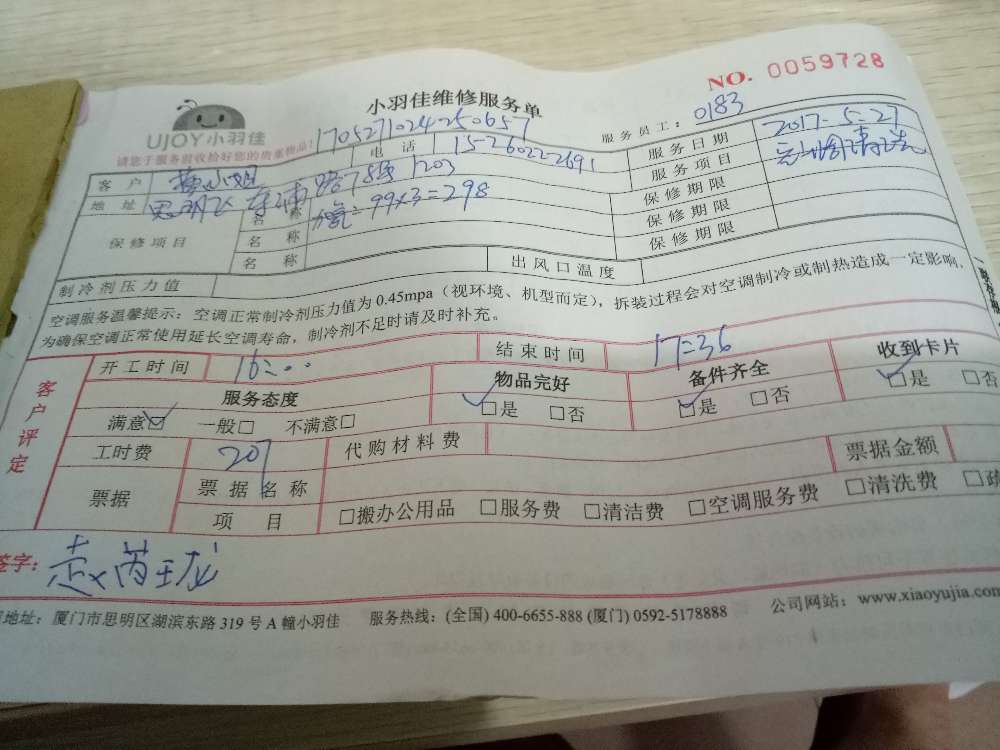 NO. 0059728
小羽佳维修服务单
UJOY小羽佳
1705271024250657
服务员工：0183
请您于服务前收拾好您的贵重物品！
客户 小姐 电话 15-26022-2691 服务日期 2017-5-27
地址 思明区 路78号1203 服务项目 清洗
保修项目 名称 =99x3=298 保修期限
名称 保修期限
名称 保修期限
制冷剂压力值 出风口温度
空调服务温馨提示：空调正常制冷剂压力值为0.45mpa（视环境、机型而定），拆装过程会对空调制冷或制热造成一定影响，
为确保空调正常使用延长空调寿命，制冷剂不足时请及时补充。
客户评定
开工时间 16:00 结束时间 17:36
服务态度 物品完好 备件齐全 收到卡片
满意☑ 一般□ 不满意□ ☑是 □否 ☑是 □否 ☑是 □否
工时费 207 代购材料费
票据 票据名称 票据金额
项目 □搬办公用品 □服务费 □清洁费 □空调服务费 □清洗费 □疏
签字：
地址：厦门市思明区湖滨东路319号A幢小羽佳 服务热线：(全国) 400-6655-888 (厦门) 0592-5178888 公司网站：www.xiaoyujia.com